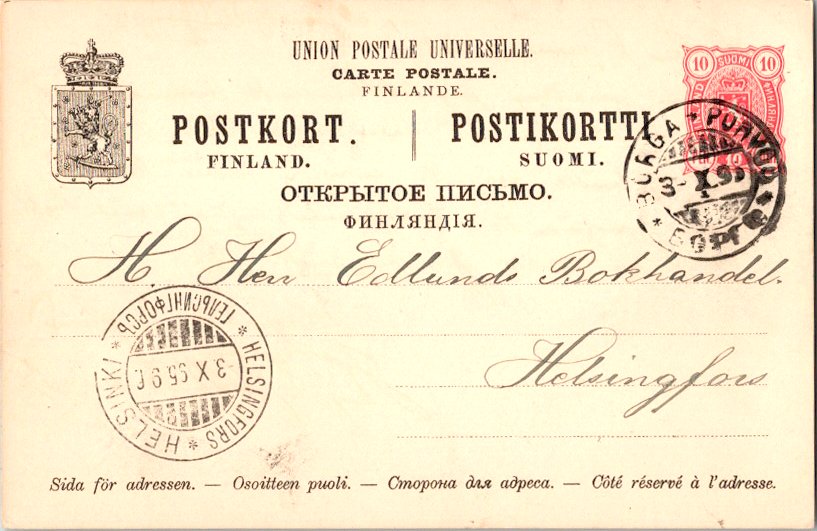 UNION POSTALE UNIVERSELLE.
CARTE POSTALE.
FINLANDE.
POSTKORT.
FINLAND.
POSTIKORTTI
SUOMI.
ОТКРЫТОЕ ПИСЬМО.
ФИНЛЯНДІЯ.
10 SUOMI 10
10
BORGA * PORVOO * БОРГО *
3 X 95
H. Herr Edlunds Bokhandel.
Helsingfors
HELSINKI * ГЕЛЬСИНГФОРСЪ * HELSINGFORS *
3 X 95
Sida för adressen. — Osoitteen puoli. — Сторона для адреса. — Côté réservé à l'adresse.